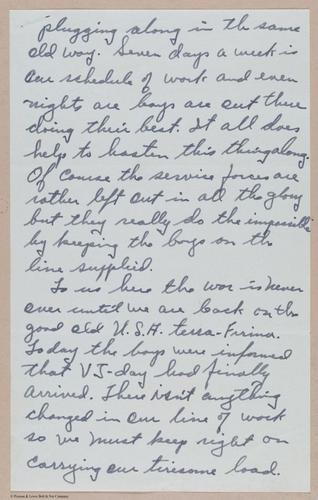 plugging along in the same
old way. Seven days a week is
our schedule of work and even
nights are boys are out there
doing their best. It all does
help to hasten this thing along.
Of course the service forces are
rather left out in all the glory
but they really do the impossible
by keeping the boys on the
line supplied.
To us here the war is never
over until we are back on the
good old U.S.A. terra-firma.
To day the boys were informed
that VJ-day had finally
arrived. There isn't anything
changed in our line of work
so we must keep right on
carrying our tiresome load.